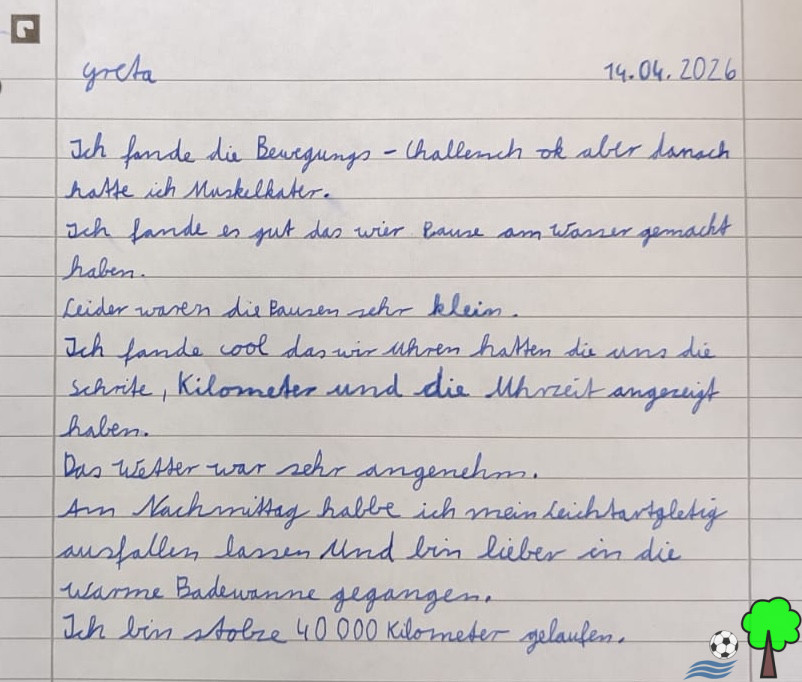 Greta 14.04.2026
Ich fande die Bewegungs - Challensch ok aber danach
hatte ich Muskelkater.
Ich fande es gut das wier Pause am Wasser gemacht
haben.
Leider waren die Pausen sehr klein.
Ich fande cool das wir Uhren hatten die uns die
Schrite, Kilometer und die Uhrzeit angezeigt
haben.
Das Wetter war sehr angenehm.
Am Nachmittag habbe ich mein Leichtartgletig
ausfallen lassen Und bin lieber in die
Warme Badewanne gegangen.
Ich bin stolze 40 000 Kilometer gelaufen.